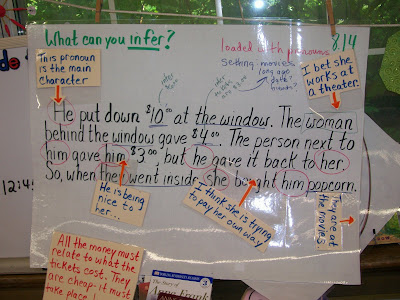 What can you infer?
loaded with pronouns
8.14
Setting: movies
long ago
date?
This pronoun
is the main
character
I bet she
works at
a theater.
He put down $10.00 at the window. The woman
behind the window gave $4.00. The person next to
him gave him $3.00, but he gave it back to her.
So, when they went inside, she bought him popcorn.
12:45
He is being
nice to
her...
I think she is trying
to pay her own way.
They are at
the movies
All the money must
relate to what the
tickets cost. They
are cheap - it must
take place